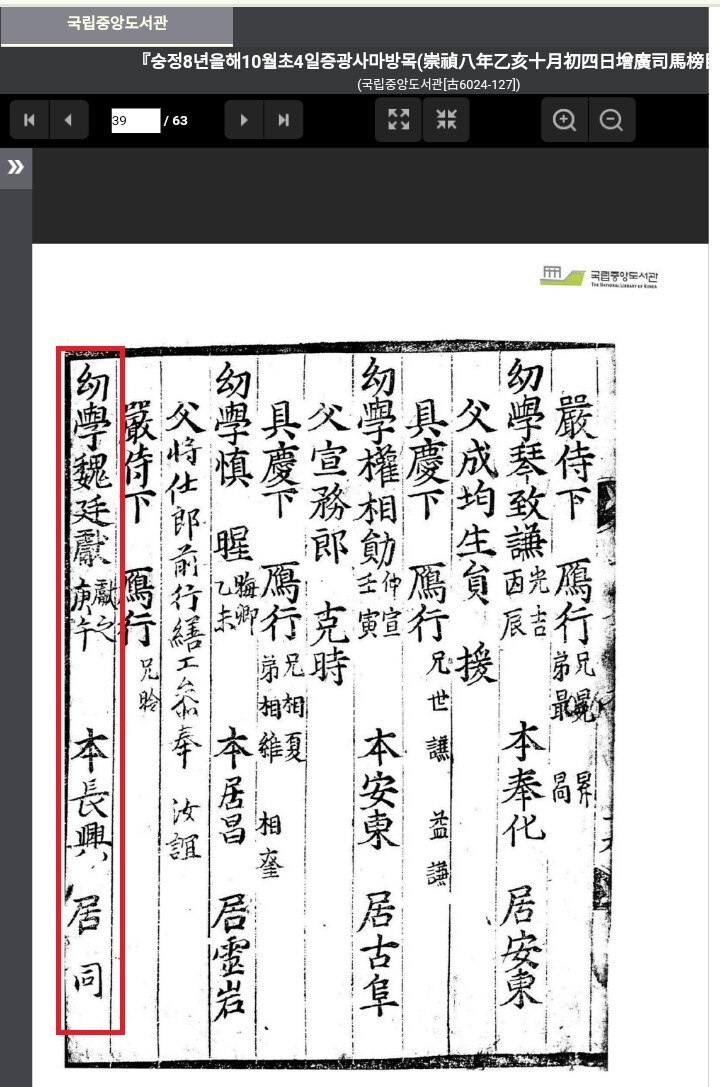 국립중앙도서관
『숭정8년을해10월초4일증광사마방목(崇禎八年乙亥十月初四日增廣司馬榜目
(국립중앙도서관[古6024-127])
39 / 63
국립중앙도서관
THE NATIONAL LIBRARY OF KOREA
嚴侍下 鴈行 兄晃 昇 弟最 昌
幼學琴致謙 光吉 丙辰 本奉化 居安東
父成均生員 援
具慶下 鴈行 兄世謙 益謙
幼學權相勛 仲宣 壬寅 本安東 居古阜
父宣務郎 克時
具慶下 鴈行 兄相夏 弟相維 相奎
幼學愼 暒 晦卿 乙未 本居昌 居靈岩
父將仕郎前行繕工參奉 汝誼
嚴侍下 鴈行 兄昤
幼學魏廷獻 獻之 庚午 本長興 居同